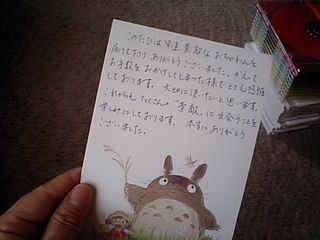 このたびは早速 素敵な おちゃわんを
届けて下り ありがとうございました。かえって
お手数をおかけしてしまった様で とても恐縮
しております。大切に使いたいと思います。
これからも たくさんの“素敵„に出会うことを
楽しみにしております。本当に ありがとう
ございました。